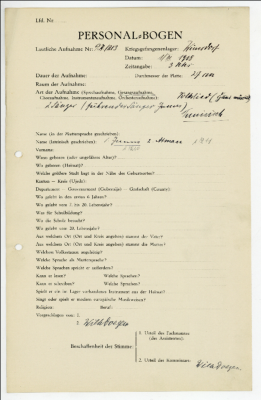 Lfd. Nr.
PERSONAL-BOGEN
Lautliche Aufnahme Nr.: Kriegsgefangenenlager:
Datum: 1918
Zeitangabe: 3 Uhr
Dauer der Aufnahme: Durchmesser der Platte: 27 cm
Ort der Aufnahme:
Art der Aufnahme (Sprechaufnahme, Gesangsaufnahme,
Choraufnahme, Instrumentenaufnahme, Orchesteraufnahme): Volkslied
2 Sänger
Name (in der Muttersprache geschrieben):
Name (lateinisch geschrieben): 1. 2.
Vorname:
Wann geboren (oder ungefähres Alter)?
Wo geboren (Heimat)?
Welche größere Stadt liegt in der Nähe des Geburtsortes?
Kanton — Kreis (Ujezd):
Departement — Gouvernement (Gubernija) — Grafschaft (County):
Wo gelebt in den ersten 6 Jahren?
Wo gelebt vom 7. bis 20. Lebensjahr?
Was für Schulbildung?
Wo die Schule besucht?
Wo gelebt vom 20. Lebensjahr?
Aus welchem Ort (Ort und Kreis angeben) stammt der Vater?
Aus welchem Ort (Ort und Kreis angeben) stammt die Mutter?
Welchem Volksstamm angehörig?
Welche Sprache als Muttersprache?
Welche Sprachen spricht er außerdem?
Kann er lesen? Welche Sprachen?
Kann er schreiben? Welche Sprachen?
Spielt er ein im Lager vorhandenes Instrument aus der Heimat?
Singt oder spielt er modern europäische Musikweisen?
Religion: Beruf:
Vorgeschlagen von: 1.
2.
Beschaffenheit der Stimme:
1. Urteil des Fachmanns
(des Assistenten):
2. Urteil des Kommissars: